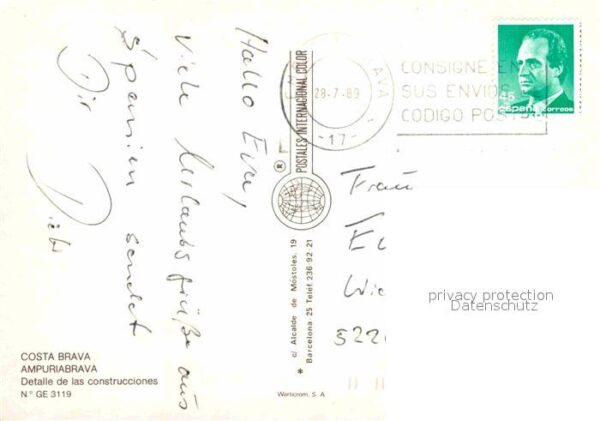 Hallo Eva,
Viele Urlaubsgrüße aus
Spanien sendet
Dir
COSTA BRAVA
AMPURIABRAVA
Detalle de las construcciones
N.º GE 3119
POSTALES INTERNACIONAL COLOR
®
* c/ Alcalde de Móstoles, 19
Barcelona-25 Telef. 236-92-21
Werticrom, S. A
28-7-89
-17-
CONSIGNE EN
SUS ENVIOS E
CODIGO POST
45
españa correos
Frau
E
Wie
522
privacy protection
Datenschutz